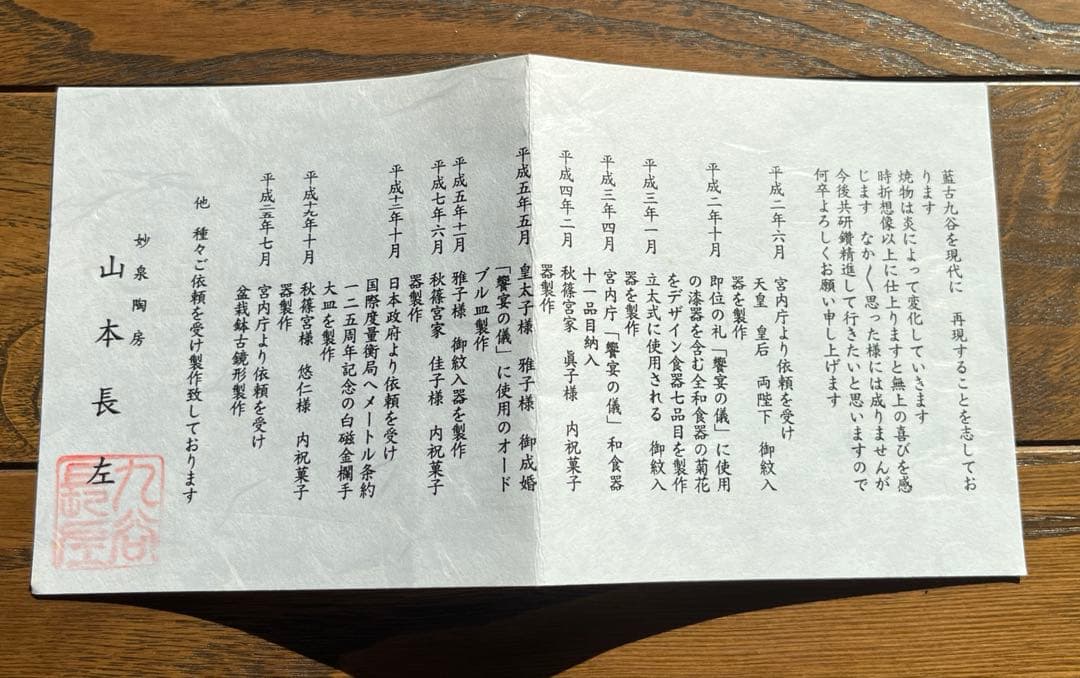 藍古九谷を現代に　再現することを志してお
ります
焼物は炎によって変化していきます
時折想像以上に仕上りますと無上の喜びを感
じます　なか〱思った様には成りませんが
今後共研鑽精進して行きたいと思いますので
何卒よろしくお願い申し上げます
平成二年六月　宮内庁より依頼を受け
天皇　皇后　両陛下　御紋入
器を製作
平成二年十月　即位の礼「饗宴の儀」に使用
の漆器を含む全和食器の菊花
をデザイン食器七品目を製作
平成三年一月　立太式に使用される　御紋入
器を製作
平成三年四月　宮内庁「饗宴の儀」和食器
十一品目納入
平成四年二月　秋篠宮家　眞子様　内祝菓子
器製作
平成五年五月　皇太子様　雅子様　御成婚
「饗宴の儀」に使用のオード
ブル皿製作
平成五年十二月　雅子様　御紋入器を製作
平成七年六月　秋篠宮家　佳子様　内祝菓子
器製作
平成十二年十月　日本政府より依頼を受け
国際度量衡局へメートル条約
一二五周年記念の白磁金欄手
大皿を製作
平成十九年十月　秋篠宮様　悠仁様　内祝菓子
器製作
平成二五年七月　宮内庁より依頼を受け
盆栽鉢古鏡形製作
他　種々ご依頼を受け製作致しております
妙泉陶房
山本長左
九谷
長左